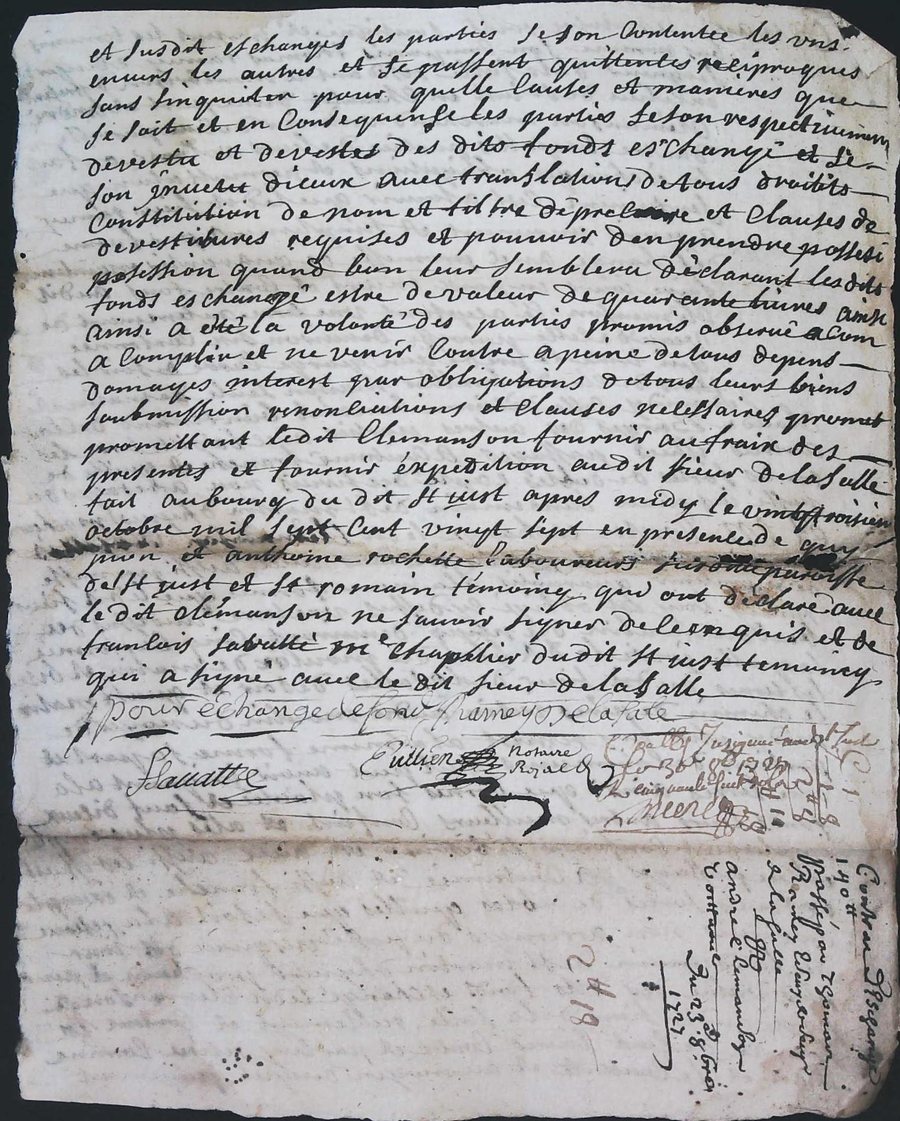 et susdit eschanges les parties se son Contentée les uns
envers les autres et se passent quittences reciproques
sans sinquiter pour quelle Causes et manières que
se soit et en Consequense les parties se son respectivemen
devestu et devestes des dits fonds eschangé et se
son invetu diceux avec translations de tous droitts
Constitution de nom et tiltre de precaire et Clauses de
devestitures requises et pouvoir den prendre possesi
posession quand bon leur semblera déclarant les dits
fonds eschangé estre de valeur de quarante livres ainsi
ainsi a été la volonté des parties promis observé acom
a Complir et ne venir Contre a peine de tous depens
Domages interest par obligations de tous leurs biens
soubmission renonciations et Clauses necessaires promet
promettant ledit Clemanson fournir au fraix des
presentes et fournir éxpedition audit sieur de la salle
fait au bourg du dit st just apres midy le vinttroisiem
octobre mil sept Cent vingt sept en presence de guy
et anthoine rochette laboureurs paroisse
de st just et st romain témoing qui ont declaré avec
le dit Clémanson ne savoir signer de ce enquis et de
francois savatte me Chapelier du dit st just temoing
qui a signé avec le dit sieur de la salle
pour échange de fond Ramey De la sale
fsavatte Cuillien Notaire Rojal
1727
2 # 18
Contrat
140 tt
passé
Ramey
de la salle
et
andré Clemanson
Du 23 8bre
1727